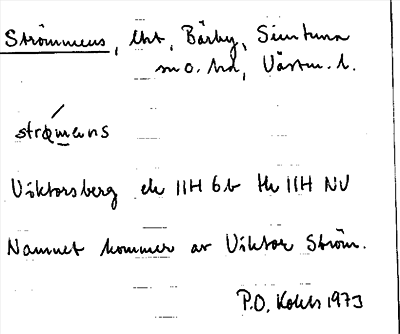 Strömmens, lht, Bärby, Simtuna
sn o. hd, Västm. l.
strømens
Viktorsberg ek 11H 6b tk 11H NV
Namnet kommer av Viktor Ström.
P.O. 1973